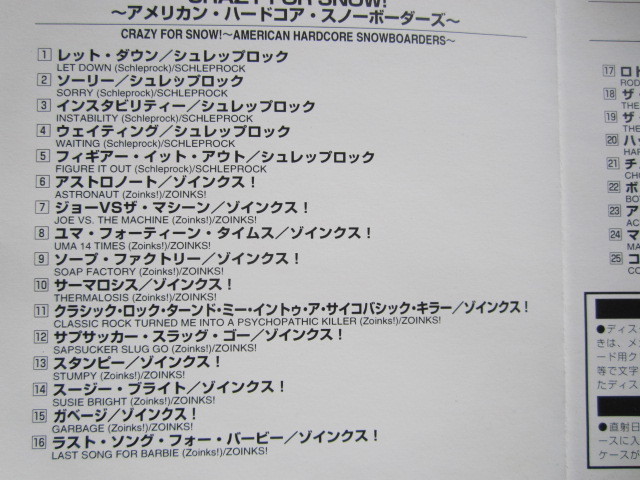 CRAZY FOR SNOW!
〜アメリカン・ハードコア・スノーボーダーズ〜
CRAZY FOR SNOW!〜AMERICAN HARDCORE SNOWBOARDERS〜
1 レット・ダウン／シュレップロック
LET DOWN (Schleprock)/SCHLEPROCK
2 ソーリー／シュレップロック
SORRY (Schleprock)/SCHLEPROCK
3 インスタビリティー／シュレップロック
INSTABILITY (Schleprock)/SCHLEPROCK
4 ウェイティング／シュレップロック
WAITING (Schleprock)/SCHLEPROCK
5 フィギアー・イット・アウト／シュレップロック
FIGURE IT OUT (Schleprock)/SCHLEPROCK
6 アストロノート／ゾインクス！
ASTRONAUT (Zoinks!)/ZOINKS!
7 ジョーVSザ・マシーン／ゾインクス！
JOE VS. THE MACHINE (Zoinks!)/ZOINKS!
8 ユマ・フォーティーン・タイムス／ゾインクス！
UMA 14 TIMES (Zoinks!)/ZOINKS!
9 ソープ・ファクトリー／ゾインクス！
SOAP FACTORY (Zoinks!)/ZOINKS!
10 サーマロシス／ゾインクス！
THERMALOSIS (Zoinks!)/ZOINKS!
11 クラシック・ロック・ターンド・ミー・イントゥ・ア・サイコパシック・キラー／ゾインクス！
CLASSIC ROCK TURNED ME INTO A PSYCHOPATHIC KILLER (Zoinks!)/ZOINKS!
12 サプサッカー・スラッグ・ゴー／ゾインクス！
SAPSUCKER SLUG GO (Zoinks!)/ZOINKS!
13 スタンピー／ゾインクス！
STUMPY (Zoinks!)/ZOINKS!
14 スージー・ブライト／ゾインクス！
SUSIE BRIGHT (Zoinks!)/ZOINKS!
15 ガベージ／ゾインクス！
GARBAGE (Zoinks!)/ZOINKS!
16 ラスト・ソング・フォー・バービー／ゾインクス！
LAST SONG FOR BARBIE (Zoinks!)/ZOINKS!
17 ロド
ROD
18 ザ・
THE
19 ザ・
THE
20 ハッ
HAR
21 チョ
CHO
22 ボ
BO
23 ア
AC
24 マ
MA
25 コ
CO
●ディス
きは、メガ
ード用ク
等で文字
たディス
●直射日
ースに入
ケースが